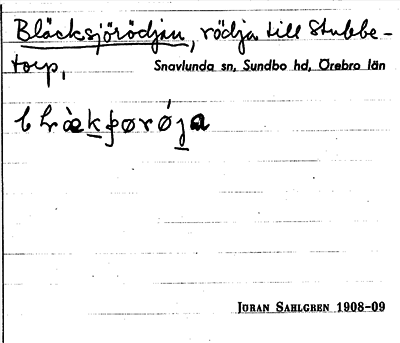 Bläcksjörödjan, rödja till Stubbe-
torp,
Snavlunda sn, Sundbo hd, Örebro län
JÖRAN SAHLGREN 1908-09